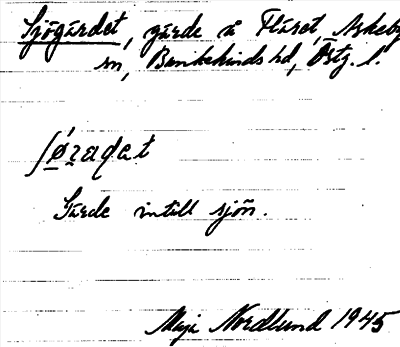 Sjögärdet, gärde å Fläret, Askeby
sn, Bankekinds hd, Östg. l.
ʃǿʀadet
Gärde intill sjön.
Maja Nordlund 1945